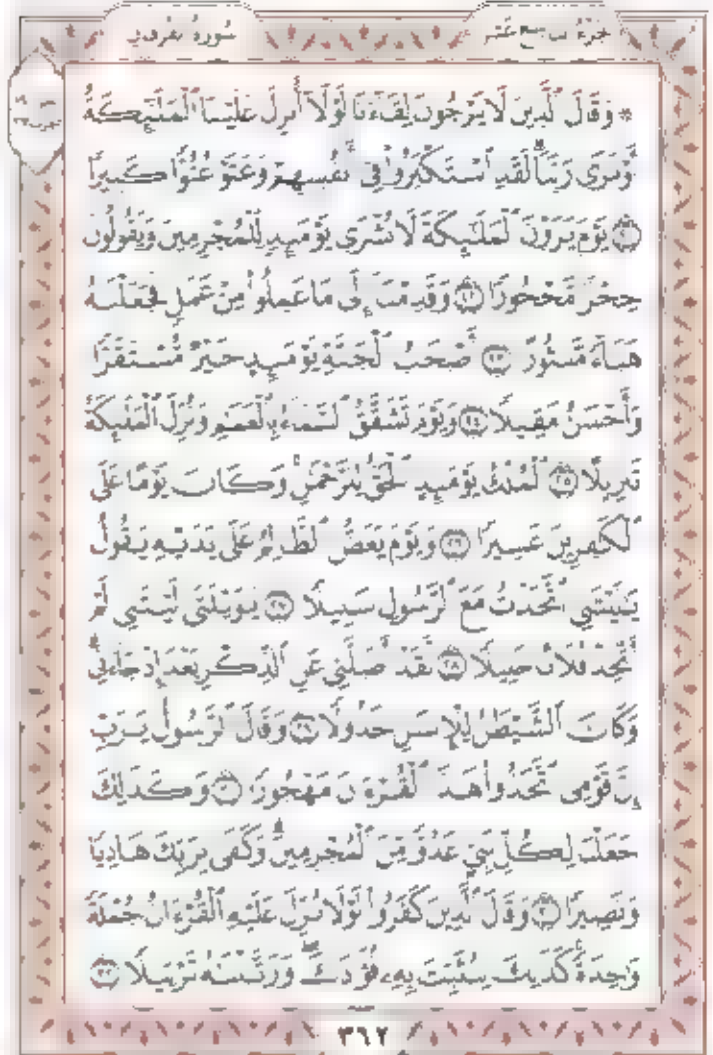 الجزء التاسع عشر
سورة الفرقان
* وَقَالَ ٱلَّذِينَ لَا يَرْجُونَ لِقَآءَنَا لَوْلَآ أُنزِلَ عَلَيْنَا ٱلْمَلَٰٓئِكَةُ
أَوْ نَرَىٰ رَبَّنَا ۗ لَقَدِ ٱسْتَكْبَرُوا۟ فِىٓ أَنفُسِهِمْ وَعَتَوْ عُتُوًّا كَبِيرًا
٢١ يَوْمَ يَرَوْنَ ٱلْمَلَٰٓئِكَةَ لَا بُشْرَىٰ يَوْمَئِذٍ لِّلْمُجْرِمِينَ وَيَقُولُونَ
حِجْرًا مَّحْجُورًا ٢٢ وَقَدِمْنَآ إِلَىٰ مَا عَمِلُوا۟ مِنْ عَمَلٍ فَجَعَلْنَٰهُ
هَبَآءً مَّنثُورًا ٢٣ أَصْحَٰبُ ٱلْجَنَّةِ يَوْمَئِذٍ خَيْرٌ مُّسْتَقَرًّا
وَأَحْسَنُ مَقِيلًا ٢٤ وَيَوْمَ تَشَقَّقُ ٱلسَّمَآءُ بِٱلْغَمَٰمِ وَنُزِّلَ ٱلْمَلَٰٓئِكَةُ
تَنزِيلًا ٢٥ ٱلْمُلْكُ يَوْمَئِذٍ ٱلْحَقُّ لِلرَّحْمَٰنِ ۚ وَكَانَ يَوْمًا عَلَى
ٱلْكَٰفِرِينَ عَسِيرًا ٢٦ وَيَوْمَ يَعَضُّ ٱلظَّالِمُ عَلَىٰ يَدَيْهِ يَقُولُ
يَٰلَيْتَنِى ٱتَّخَذْتُ مَعَ ٱلرَّسُولِ سَبِيلًا ٢٧ يَٰوَيْلَتَىٰ لَيْتَنِى لَمْ
أَتَّخِذْ فُلَانًا خَلِيلًا ٢٨ لَّقَدْ أَضَلَّنِى عَنِ ٱلذِّكْرِ بَعْدَ إِذْ جَآءَنِى ۗ
وَكَانَ ٱلشَّيْطَٰنُ لِلْإِنسَٰنِ خَذُولًا ٢٩ وَقَالَ ٱلرَّسُولُ يَٰرَبِّ
إِنَّ قَوْمِى ٱتَّخَذُوا۟ هَٰذَا ٱلْقُرْءَانَ مَهْجُورًا ٣٠ وَكَذَٰلِكَ
جَعَلْنَا لِكُلِّ نَبِىٍّ عَدُوًّا مِّنَ ٱلْمُجْرِمِينَ ۗ وَكَفَىٰ بِرَبِّكَ هَادِيًا
وَنَصِيرًا ٣١ وَقَالَ ٱلَّذِينَ كَفَرُوا۟ لَوْلَا نُزِّلَ عَلَيْهِ ٱلْقُرْءَانُ جُمْلَةً
وَٰحِدَةً ۚ كَذَٰلِكَ لِنُثَبِّتَ بِهِۦ فُؤَادَكَ ۖ وَرَتَّلْنَٰهُ تَرْتِيلًا ٣٢
٣٦٢